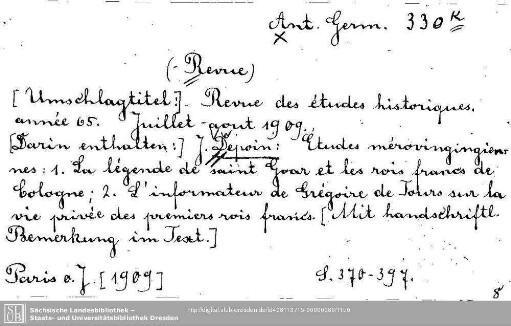 Ant. Germ. 330 k
x
(- Revue)
[Umschlagtitel:]. Revue des études historiques,
année 65. Juillet-aout 1909.
[Darin enthalten:] J. Depoin: Etudes mérovingingien-
nes: 1. La légende de saint Goar et les rois francs de
Cologne; 2. L'informateur de Grégoire de Tours sur la
vie privée des premiers rois francs. [Mit handschriftl.
Bemerkung im Text.]
Paris o. J. [1909] S. 370-397.
8
SLUB
Sächsische Landesbibliothek –
Staats- und Universitätsbibliothek Dresden